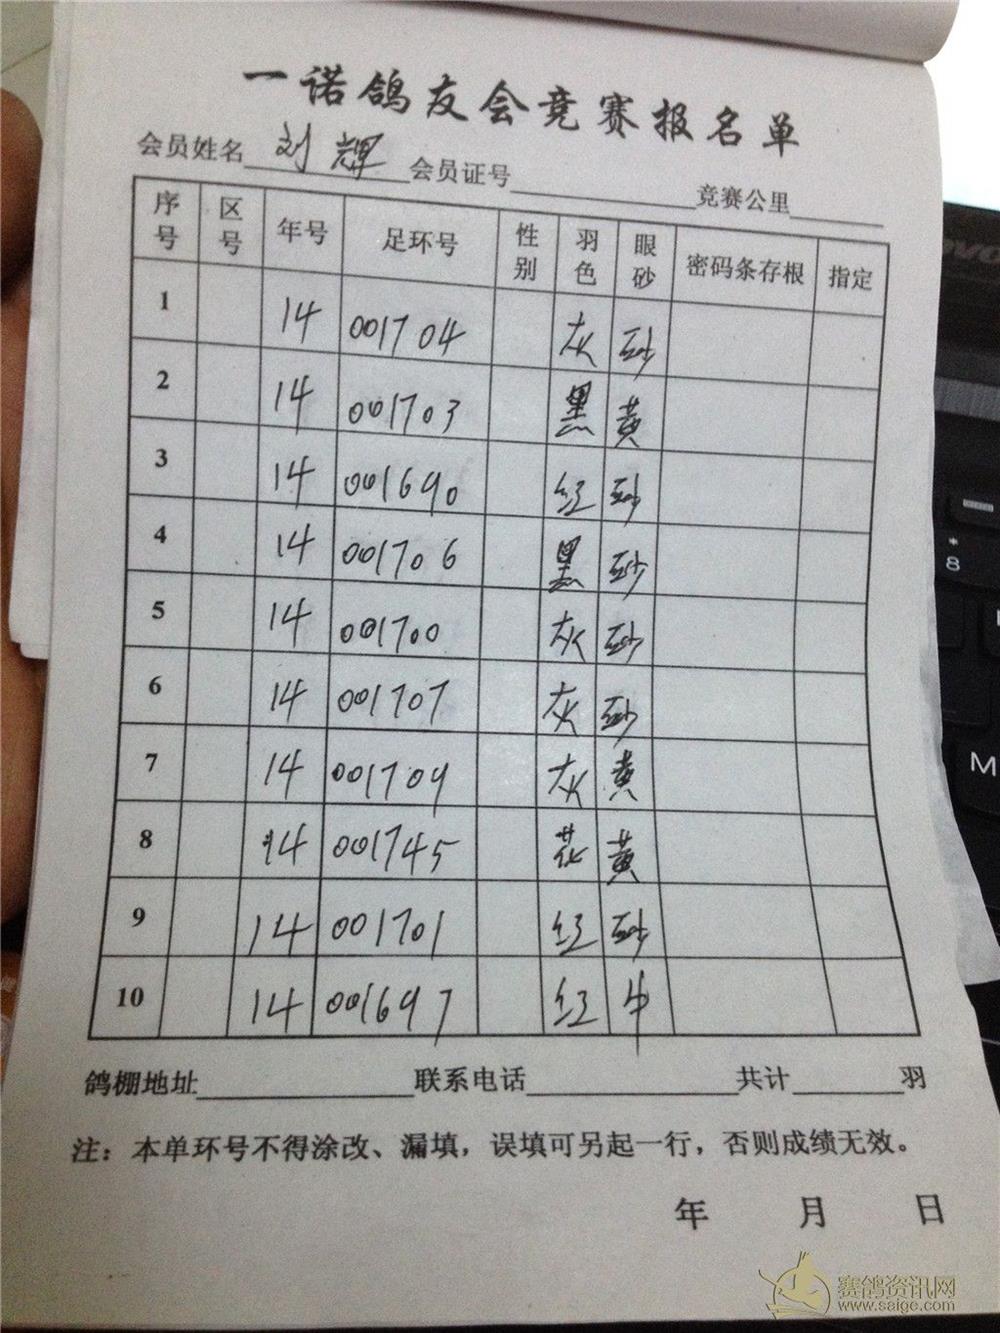 一诺鸽友会竞赛报名单
会员姓名 刘辉 会员证号 竞赛公里
序号 区号 年号 足环号 性别 羽色 眼砂 密码条存根 指定
1 14 001704 灰 砂
2 14 001703 黑 黄
3 14 001690 红 砂
4 14 001706 黑 砂
5 14 001700 灰 砂
6 14 001707 灰 砂
7 14 001709 灰 黄
8 14 001745 花 黄
9 14 001701 红 砂
10 14 001697 红 牛
鸽棚地址 联系电话 共计 羽
注：本单环号不得涂改、漏填，误填可另起一行，否则成绩无效。
年 月 日
赛鸽资讯网
www.saige.com
*
8
M